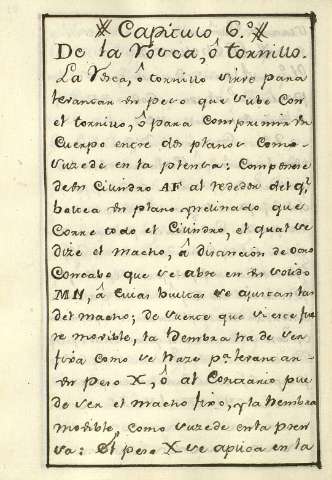 Capitulo 6.º
De la Rosca, ô tornillo.
La Rosca, ô tornillo sirve para
levantar un peso que sube con
el tornillo, ô para comprimir un
cuerpo entre dos planos como
suzede en la prensa: Componese
de un Cilindro AF al rededor del ql
bolcea un plano ynclinado que
corre todo el Cilindro, el qual se
dize el macho, â distancion de otro
concabo que se abre en un solido
MN, â cuias bueltas se ajustan las
del macho; de suerte que si este fue
re movible, la hembra ha de ser
fixa como se haze pª levantar
un peso X, ô al contrario pue
de ser el macho fixo, y la hembra
movible, como suzede en la pren
sa: El peso X se aplica en la